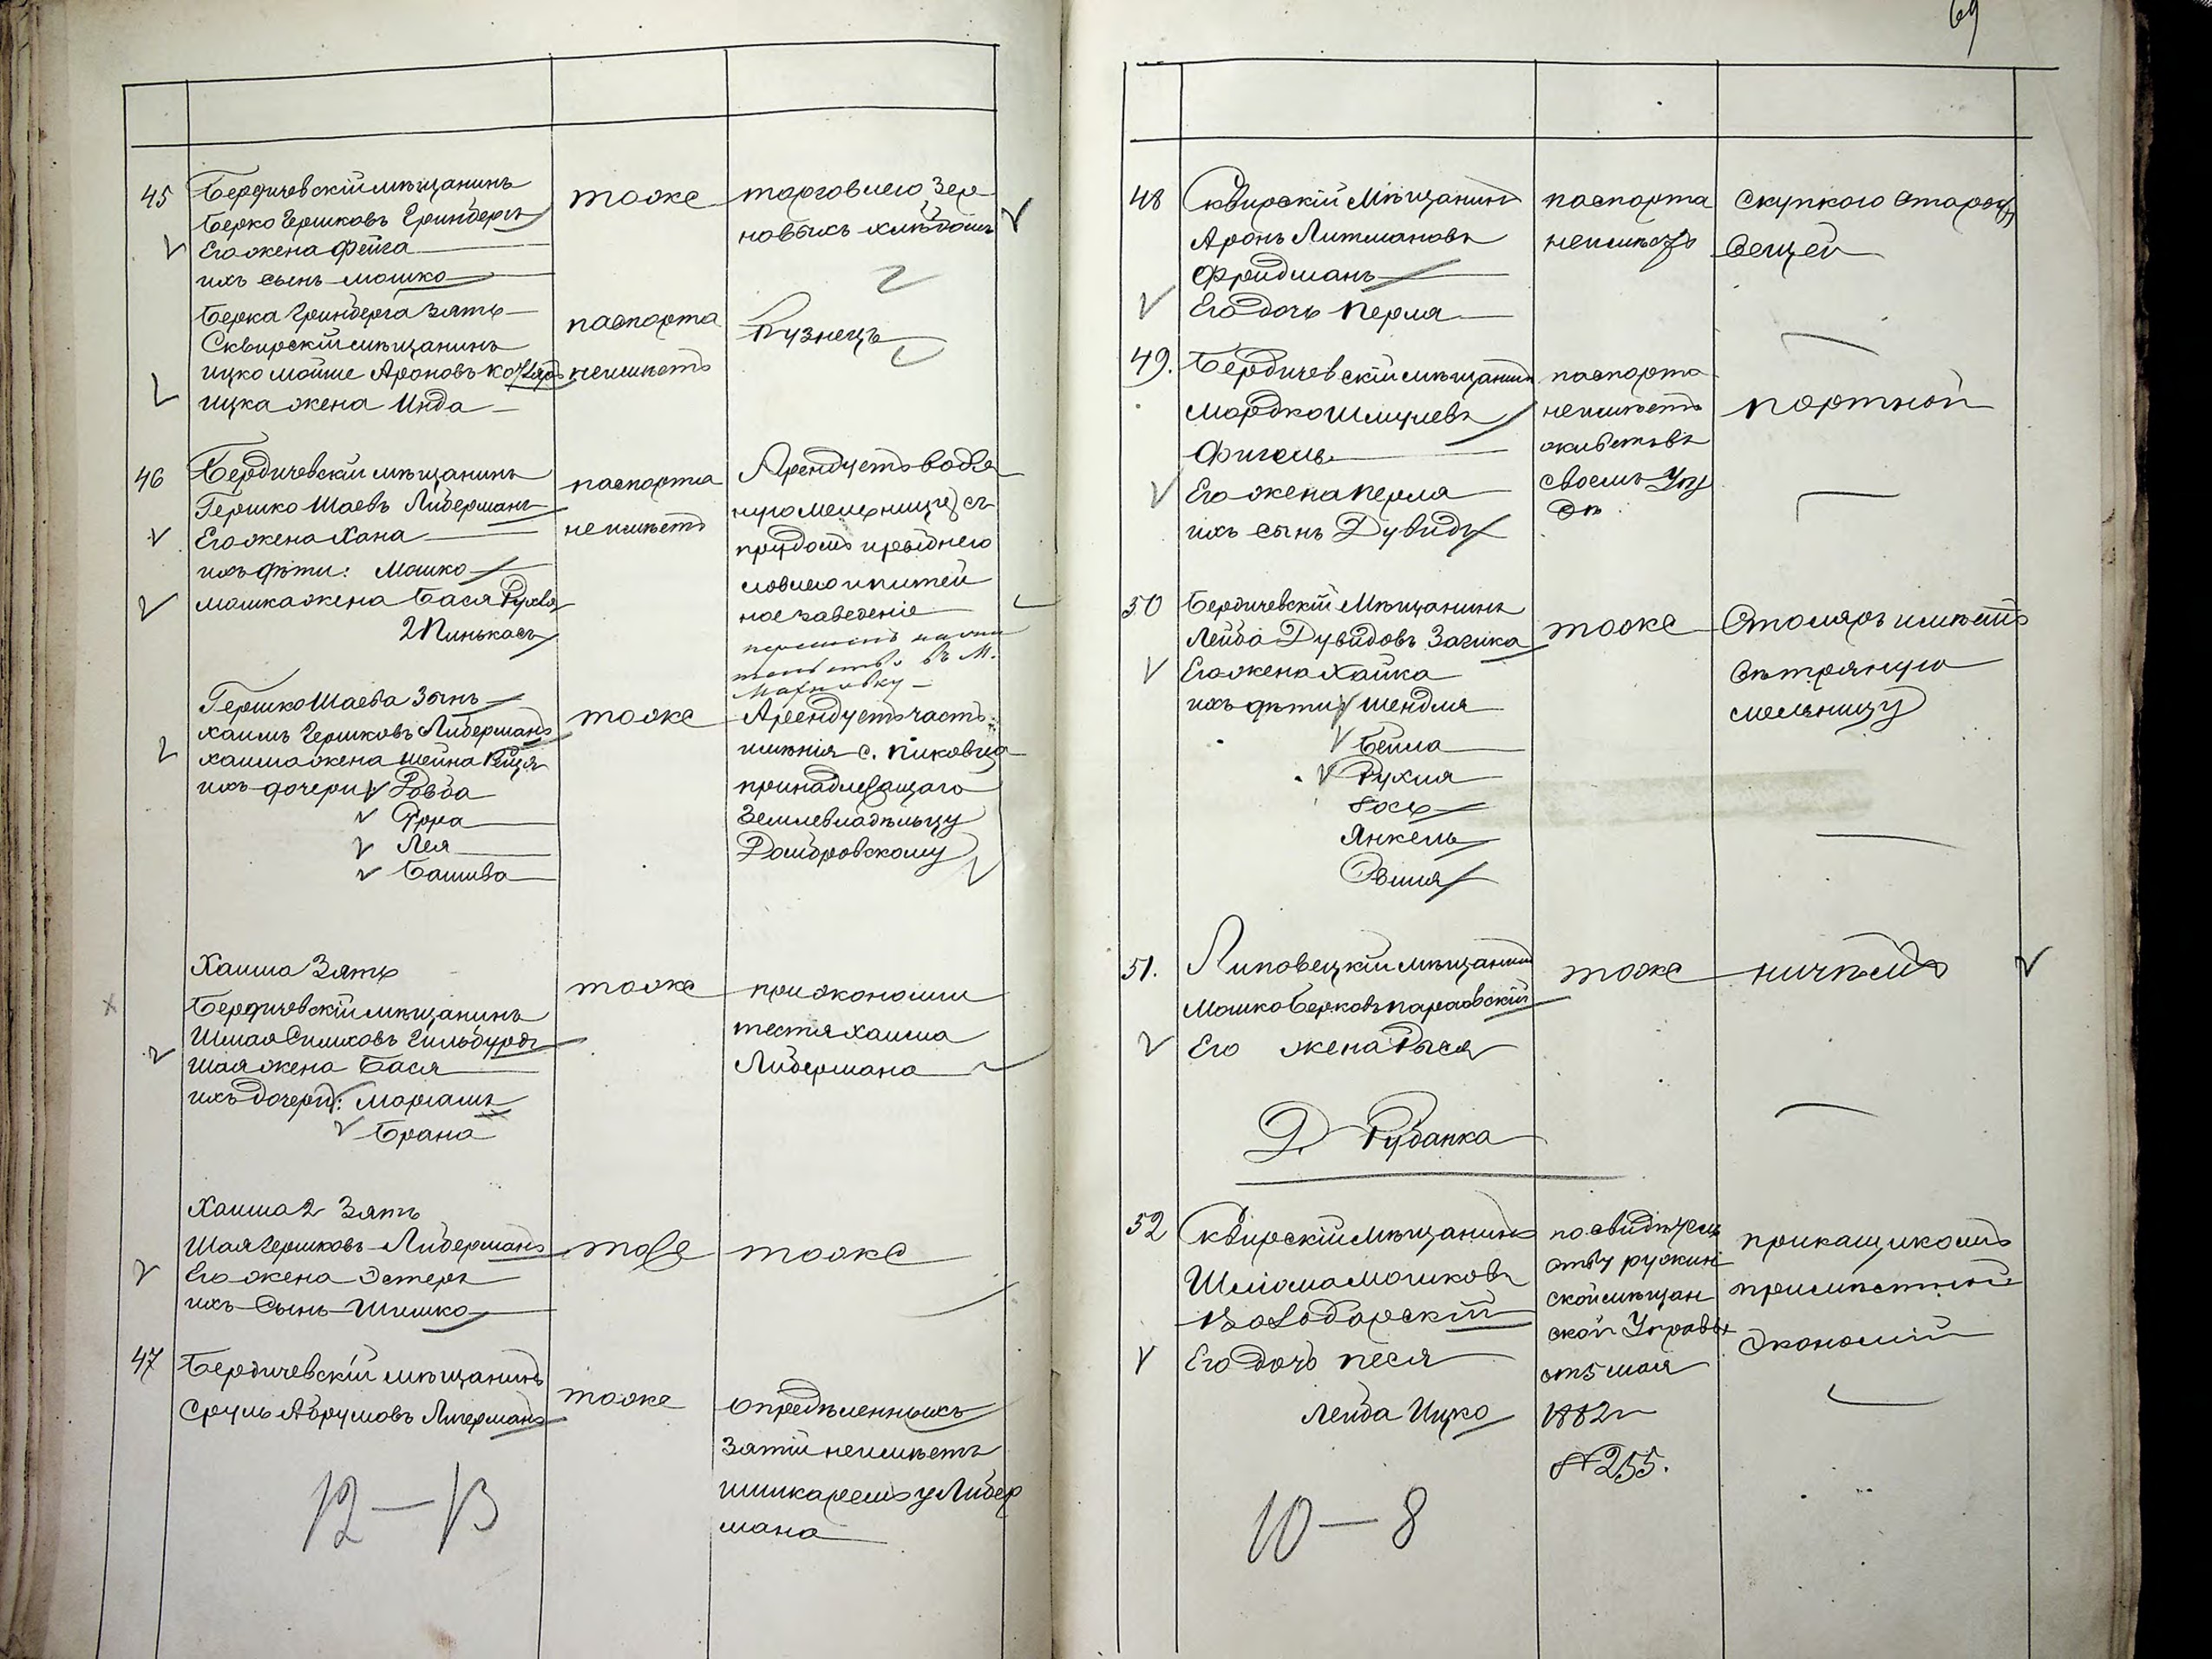 69
45 Бердичевскій мѣщанинъ
Берко Гершковъ Гринбергъ
Его жена Фейга
ихъ сынъ Мошко
тоже
торговлею зер
новымъ хлѣбомъ
Берка Гринберга зять
Сквирскій мѣщанинъ
Ицко Мойше Ароновъ
Ицка жена Инда
паспорта
неимѣетъ
Кузнецъ
46 Бердичевскій мѣщанинъ
Гершко Шаевъ Либерманъ
Его жена Хана
ихъ дѣти: Мошко
Мошка жена Бася Рухля
2 Пинькасъ
паспорта
неимѣетъ
Арендуетъ водя
ную мельницу съ
прудомъ и рыбнею
ловлею и питей
ное заведеніе
въ М.
Махновку
Гершко Шаева Зынъ
Хаимъ Гершковъ Либерманъ
Хаима жена Шейна Рейзя
ихъ дочери Ройба
Фрра
Лея
Башива
тоже
Арендуетъ часть
имѣнія с. Пиковца
принадлежащаго
Землевладѣльцу
Домбровскому
Хаима Зять
Бердичевскій мѣщанинъ
Шмая Симховъ Гильбурдъ
Шая жена Бася
ихъ дочери: Маргамъ
Брана
тоже
при экономіи
тестя Хаима
Либермана
Хаима 2 Зять
Шая Гершковъ Либерманъ
Его жена Эстеръ
ихъ Сынъ Шимко
тоже
тоже
47 Бердичевскій мѣщанинъ
Сруль Абрумовъ Лигерманъ
тоже
опредѣленныхъ
Затій неимѣетъ
шинкаремъ у Либер
мана
12 — 13
48 Сквирскій Мѣщанинъ
Аронъ Литмановъ
Фридманъ
Его дочь Перля
паспорта
неимѣетъ
Скупкою старыхъ
вещей
49. Бердичевскій мѣщанинъ
Мордко Шмулевъ
Фигель
Его жена Перля
ихъ сынъ Дувидъ
паспорта
неимѣетъ
живетъ въ
своемъ Уѣз
дѣ
портной
50 Бердичевскій Мѣщанинъ
Лейба Дувидовъ Загика
Его жена Хайка
ихъ дѣти Шендля
Бейла
Рухля
Іось
Янкель
Эвшія
тоже
Столяръ имѣетъ
вѣтряную
мельницу
51. Липовецкій мѣщанинъ
Мошко Берковъ
Его жена Рыся
тоже
ничѣмъ
Д. Рубанка
52 Сквирскій мѣщанинъ
Шліома Мошковъ
Володарскій
Его дочь Песя
Лейба Ицко
по свидѣтель
ству ружин
ской мѣщан
ской Управы
отъ 5 мая
1882 г
№ 255.
прикащикомъ
при мѣстной
Экономіи
10 — 8